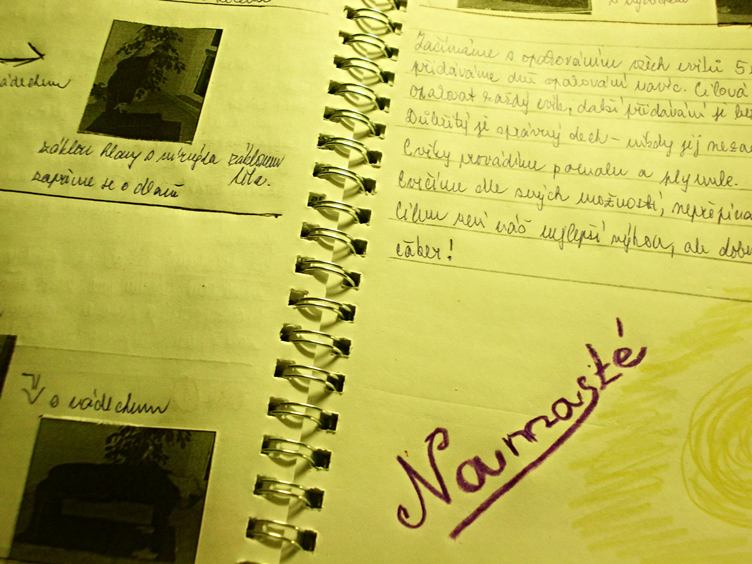 s nádechem
záklon hlavy s mírným záklonem
zapřeme se o dlaně těla.
s nádechem
Začínáme s opakováním všech cviků 5x
přidáváme dvě opakování navíc. Cílová
opakovat každý cvik, další přidávání je
Důležitý je správný dech – nikdy jej
Cviky provádíme pomalu a plynule.
Cvičíme dle svých možností,
Cílem není váš nejlepší výkon, ale
Namasté